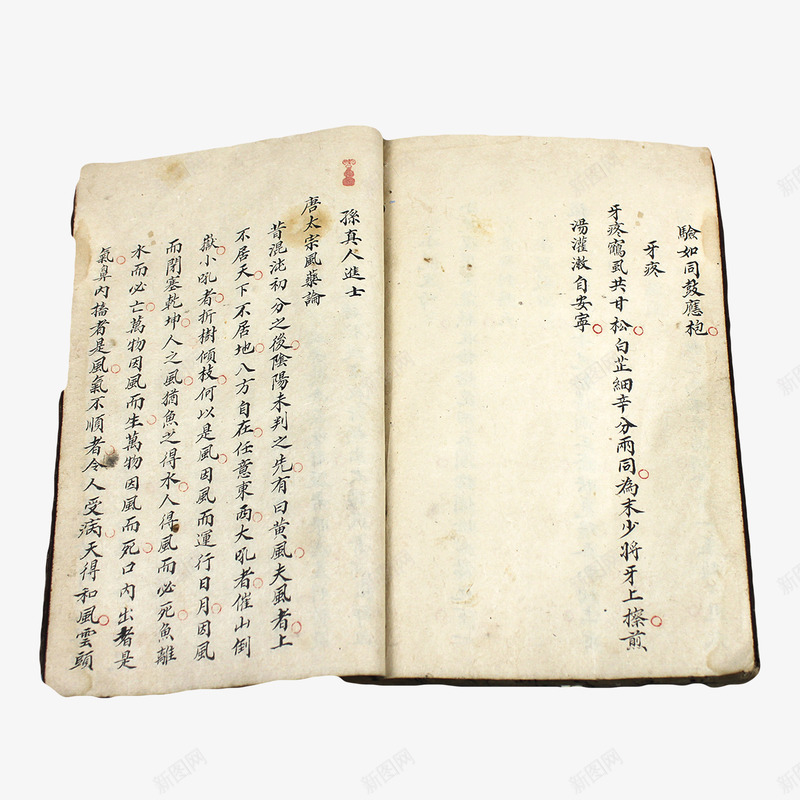 驗如同鼓應枹
牙疼
牙疼鶴虱共甘松白芷細辛分兩同為末少將牙上擦煎
湯灌漱自安寧
孫真人進士
唐太宗風藥論
昔混沌初分之後陰陽未判之先有曰黃風夫風者上
不居天下不居地八方自在任意東西大吼者催山倒
嶽小吼者折樹傾枝何以是風因風而運行日月因風
而閉塞乾坤人之風猶魚之得水人得風而必死魚離
水而必亡萬物因風而生萬物因風而死口內出者是
氣鼻內搐者是風氣不順者令人受病天得和風雲頭
新图网